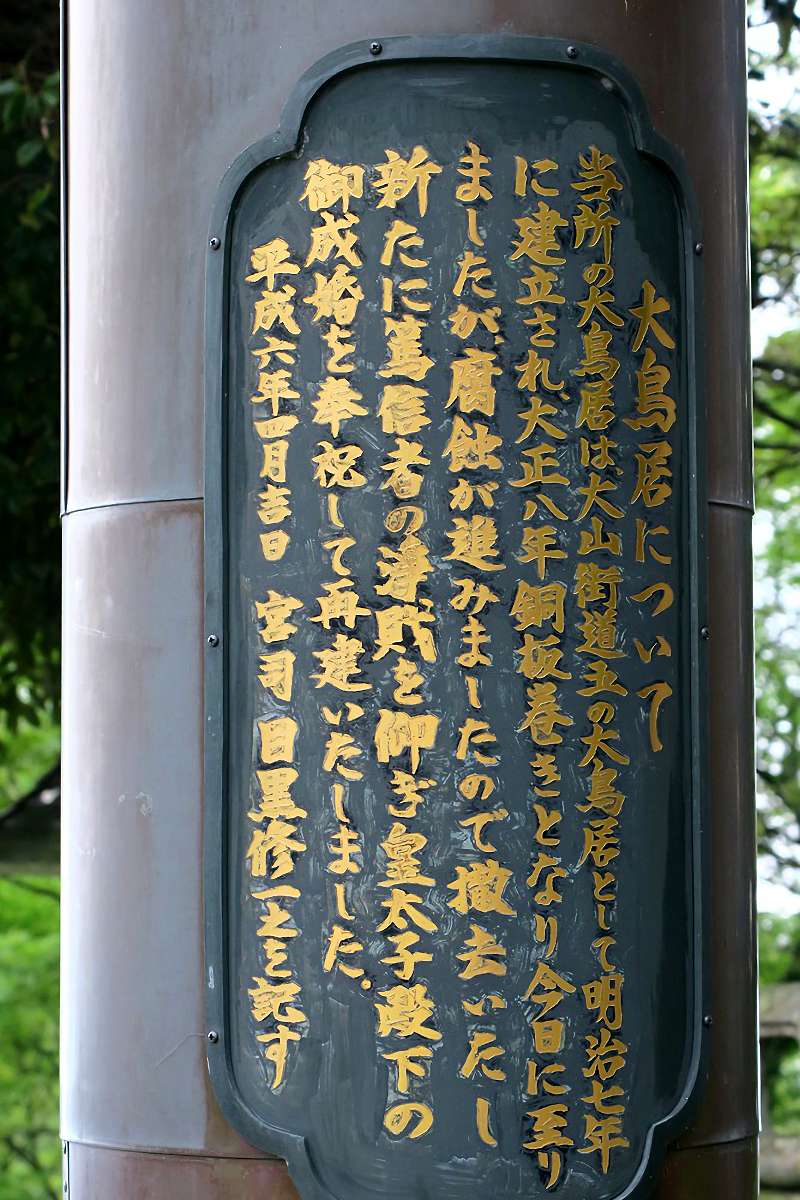 大鳥居について
当所の大鳥居は、大山街道上の大鳥居として明治七年
に建立され、大正八年銅板巻きとなり今日に至り
ましたが、腐蝕が進みましたので撤去いたし
新たに篤信者の浄財を仰ぎ皇太子殿下の
御成婚を奉祝して再建いたしました。
平成六年四月吉日 宮司 目黒修一之を記す